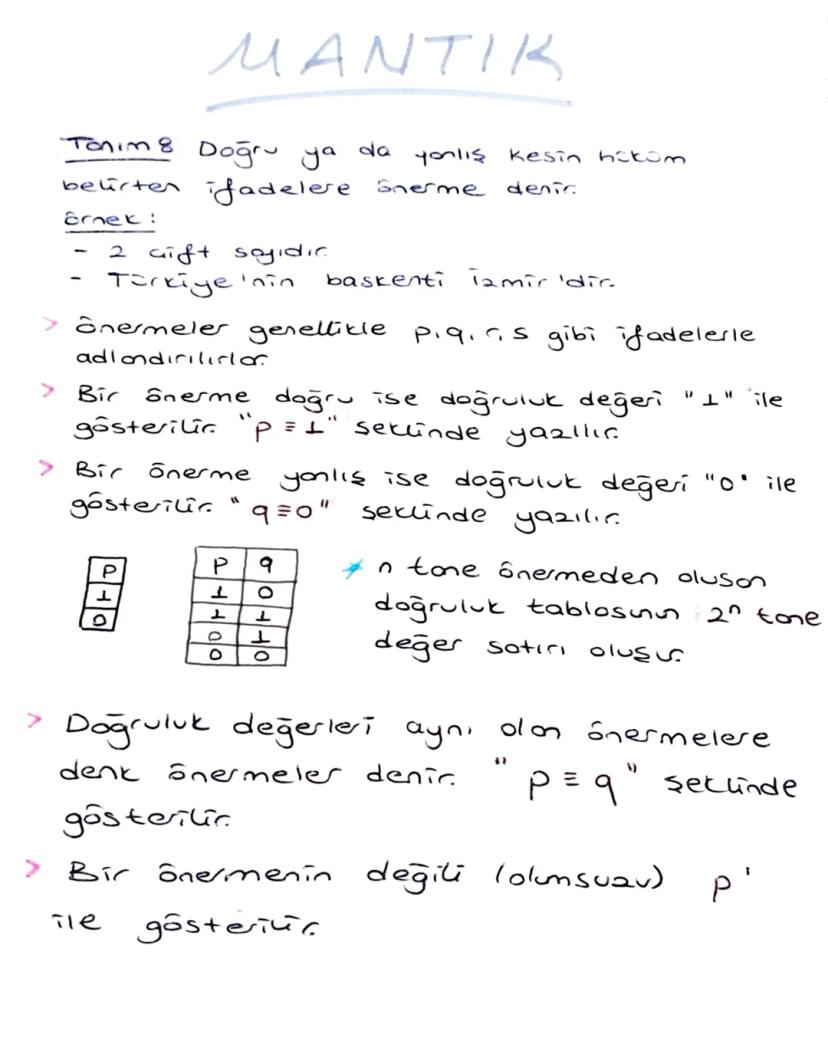 MANTIK
Tanım: Doğru ya da yanlış kesin hüküm
belirten ifadelere önerme denir.
Örnek:
- 2 çift sayıdır.
- Türkiye'nin başkenti İzmir'dir.
> Önermeler genellikle p,q,r,s gibi ifadelerle
adlandırılırlar.
> Bir önerme doğru ise doğruluk değeri "1" ile
gösterilir. "p ≡ 1" şeklinde yazılır.
> Bir önerme yanlış ise doğruluk değeri "0" ile
gösterilir. "q ≡ 0" şeklinde yazılır.
p
1
0
p q
1 0
1 1
0 1
0 0
* n tane önermeden oluşan
doğruluk tablosunun 2ⁿ tane
değer satırı oluşur.
> Doğruluk değerleri aynı olan önermelere
denk önermeler denir. "p ≡ q" şeklinde
gösterilir.
> Bir önermenin değili (olumsuzu) p'
ile gösterilir.